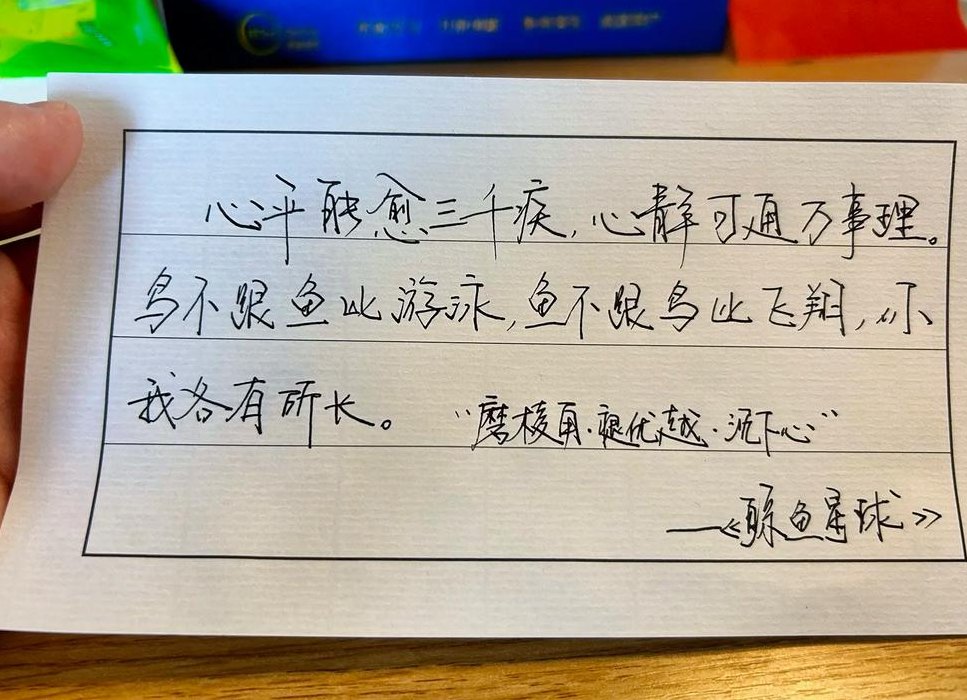 心平能愈三千疾,心静可通万事理。
鸟不跟鱼比游泳,鱼不跟鸟比飞翔,你
我各有所长。 “磨棱角·褪优越·沉下心”
——《 鱼星球》